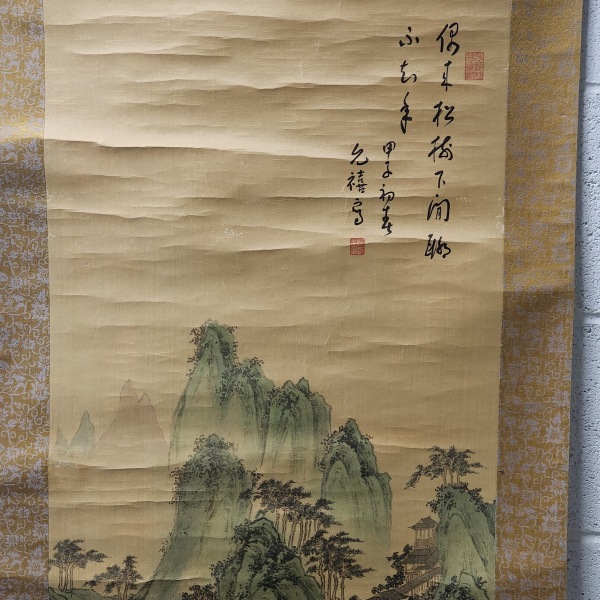 偶来松樹下閒聊
不知年
甲子初春
允禧寫